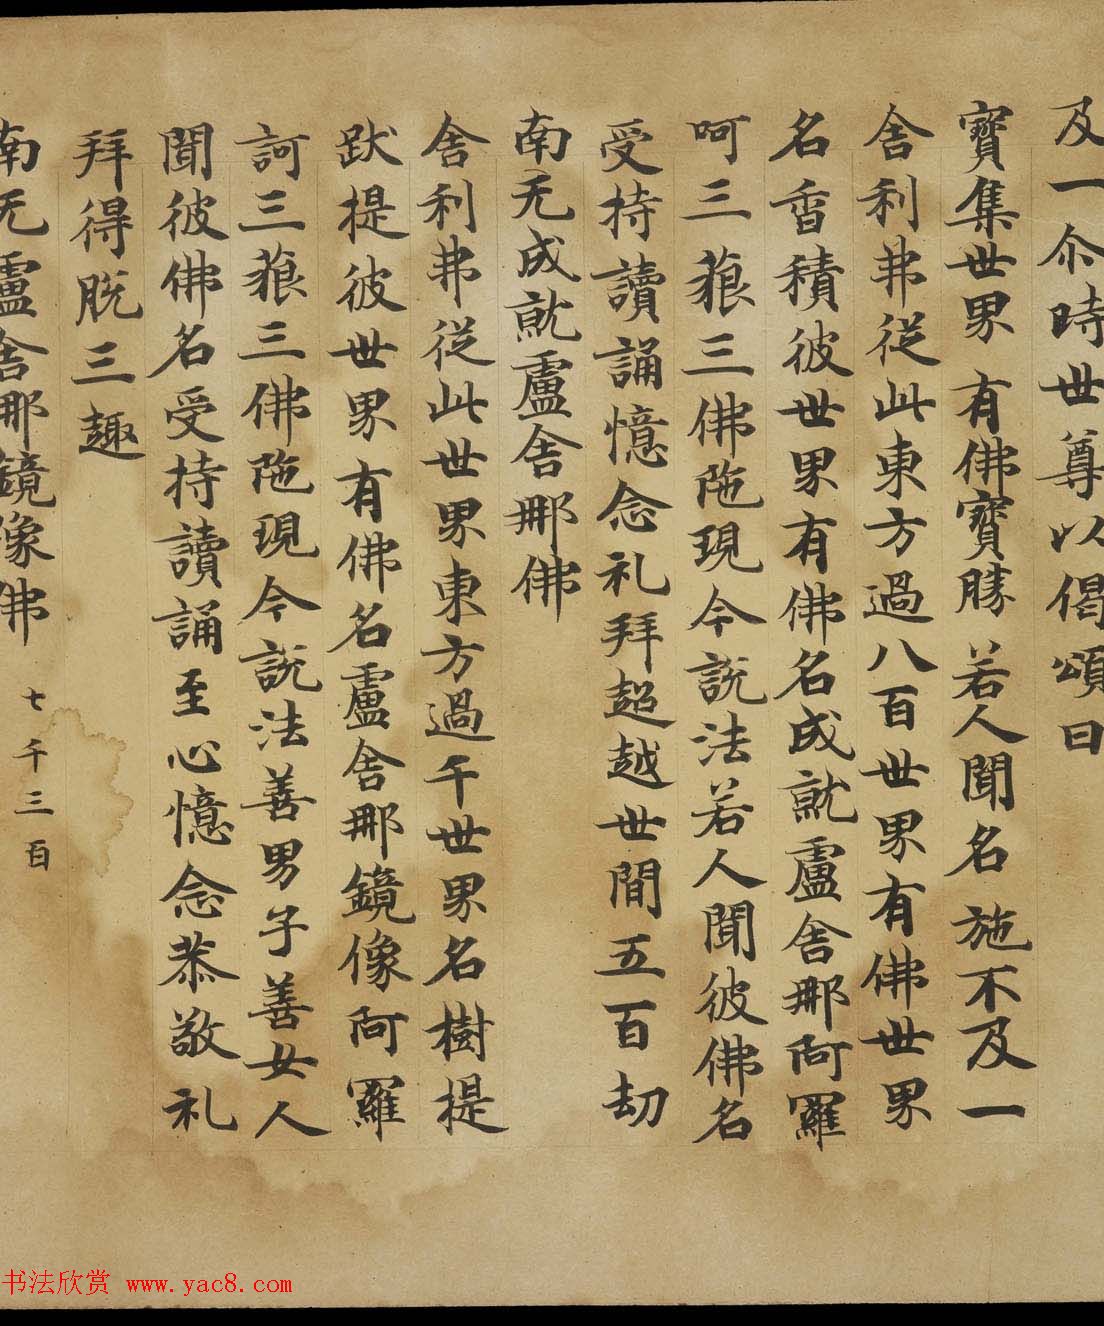 及一尒時世尊以偈頌曰
寶集世界 有佛寶勝 若人聞名 施不及一
舍利弗從此東方過八百世界有佛世界
名香積彼世界有佛名成就盧舍那阿羅
呵三藐三佛陁現今說法若人聞彼佛名
受持讀誦憶念礼拜超越世間五百劫
南无成就盧舍那佛
舍利弗從此世界東方過千世界名樹提
跋提彼世界有佛名盧舍那鏡像阿羅
訶三藐三佛陁現今說法善男子善女人
聞彼佛名受持讀誦至心憶念恭敬礼
拜得脫三趣
南无盧舍那鏡像佛 七千三百
书法欣赏 www.yac8.com